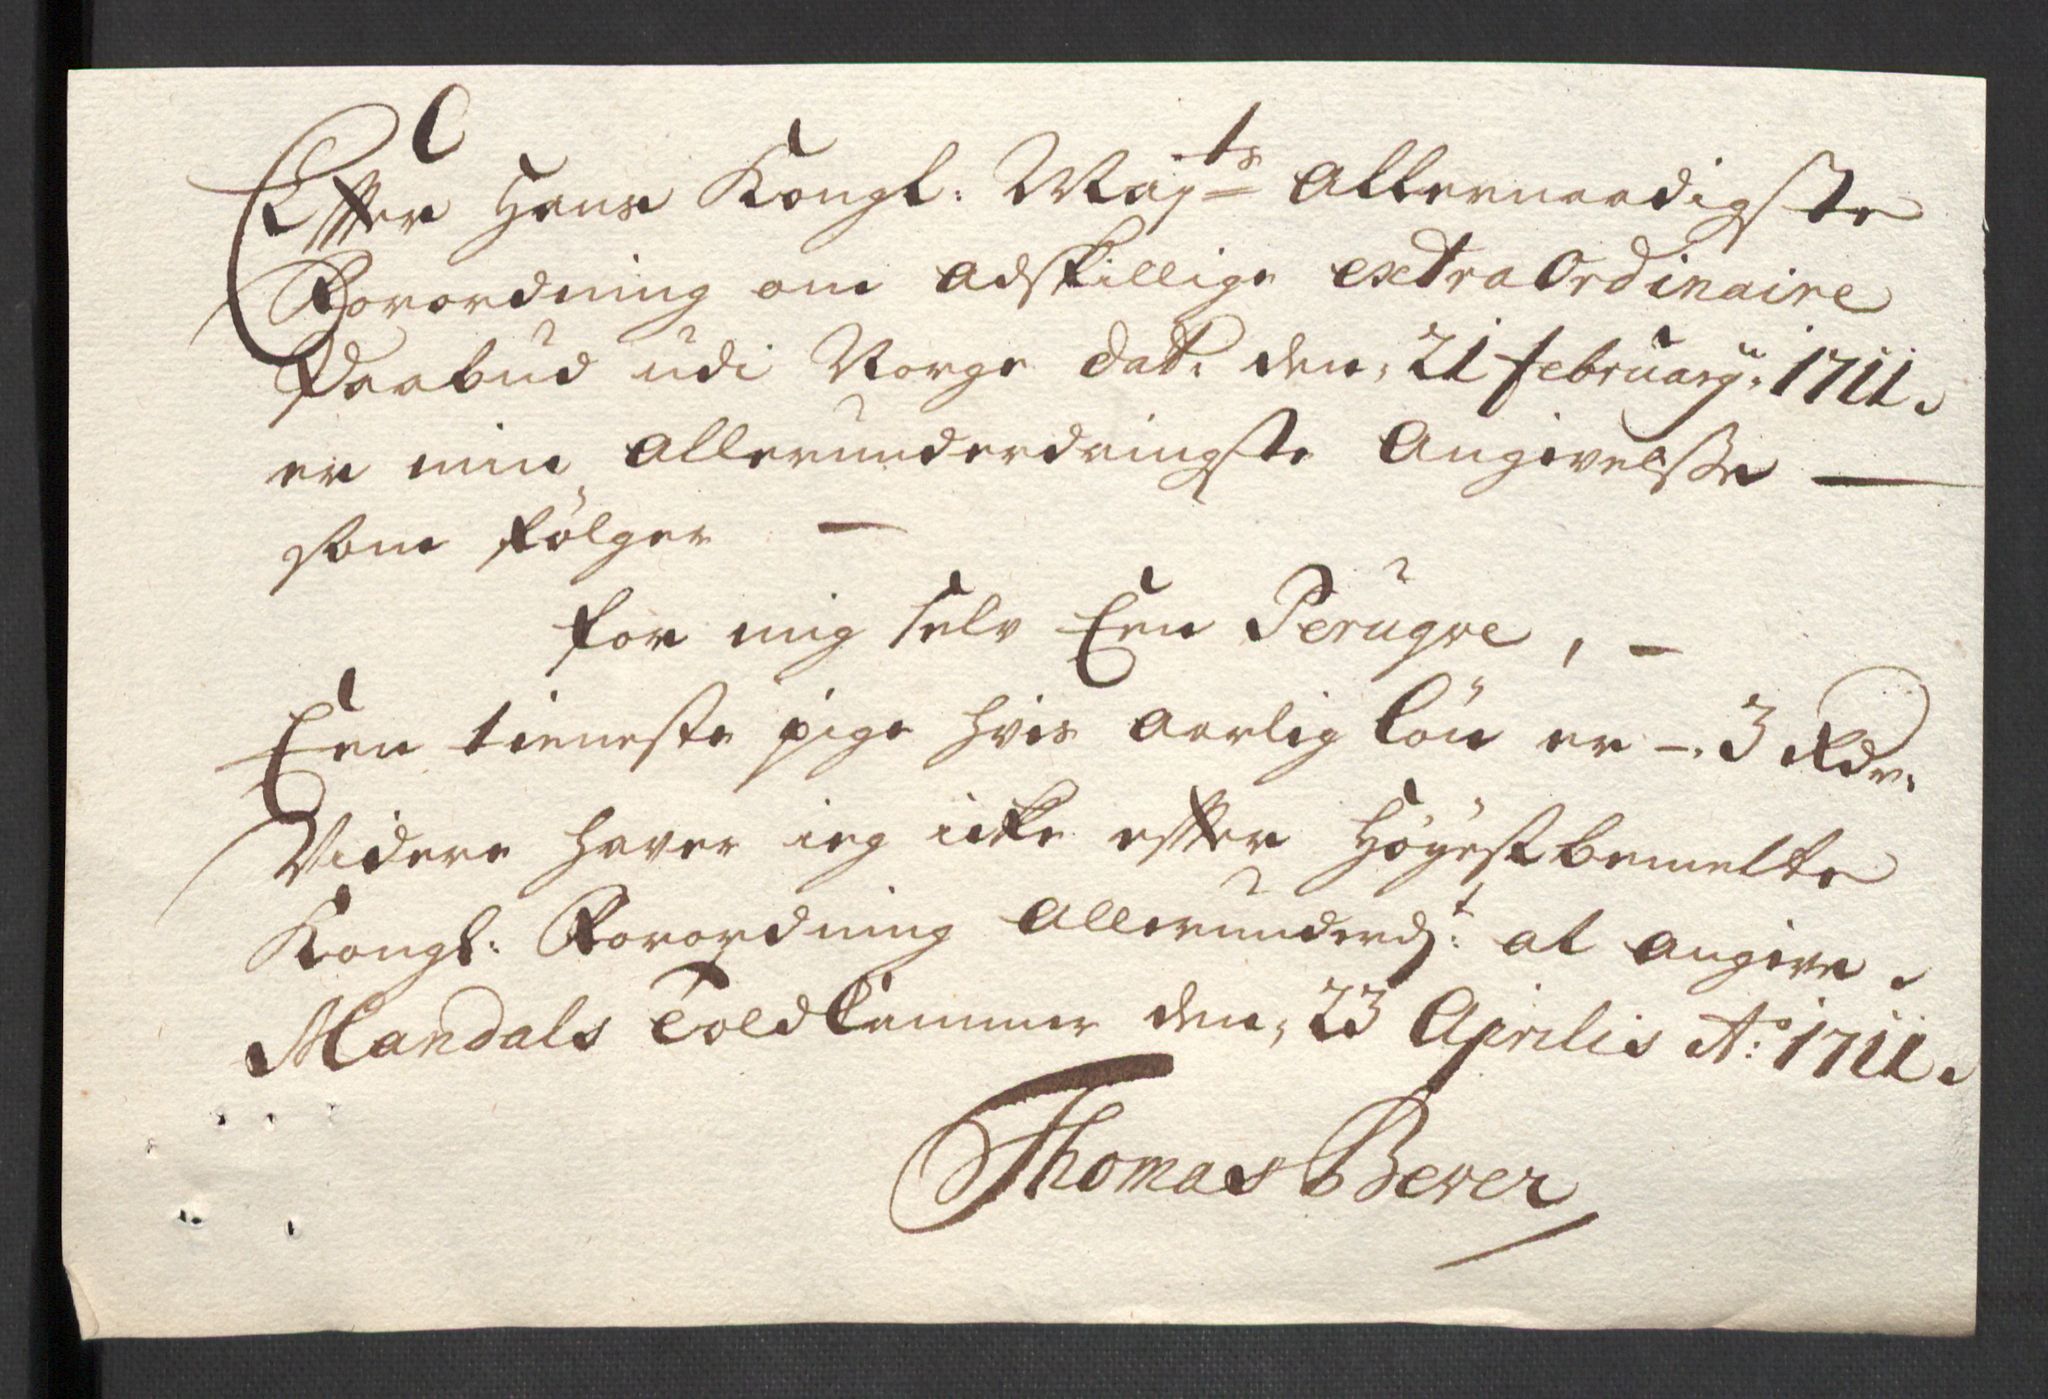 Effter Hans Kongl: Maj:ts Allernaadigste
Forordning om adskillige extraOrdinaire
Paabud udi Norge dat. den, 21 february: 1711.
er min allerunderdanigste Angivelsse —
som følger —
for mig selv Een Perugve, —
Een tieneste pige hvis aarlig løn er —. 3 Rdr.
Videre haver ieg icke effter Höyestbemelte
Kongl: Forordning allerunderdt: at angive.
Mandals Toldkammer den, 23 Aprilis Ao: 1711.
Thomas Bever